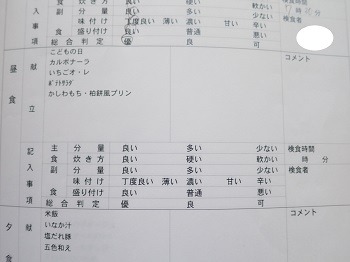 食 炊き方 良い 硬い 軟かい
副 分量 良い 多い 少ない
味付け 丁度良い 薄い 濃い 甘い 辛い
食 盛り付け 良い 普通 悪い
総合判定 優 良 可
入 事 項
検食時間
時 分
検食者
昼 食
献 立
こどもの日
カルボナーラ
いちごオ・レ
ポテトサラダ
かしわもち・柏餅風プリン
コメント
記 入 事 項
主 分量 良い 多い 少ない
食 炊き方 良い 硬い 軟かい
副 分量 良い 多い 少ない
味付け 丁度良い 薄い 濃い 甘い 辛い
食 盛り付け 良い 普通 悪い
総合判定 優 良 可
検食時間
時 分
検食者
夕 食
献
米飯
いなか汁
塩だれ豚
五色和え
コメント